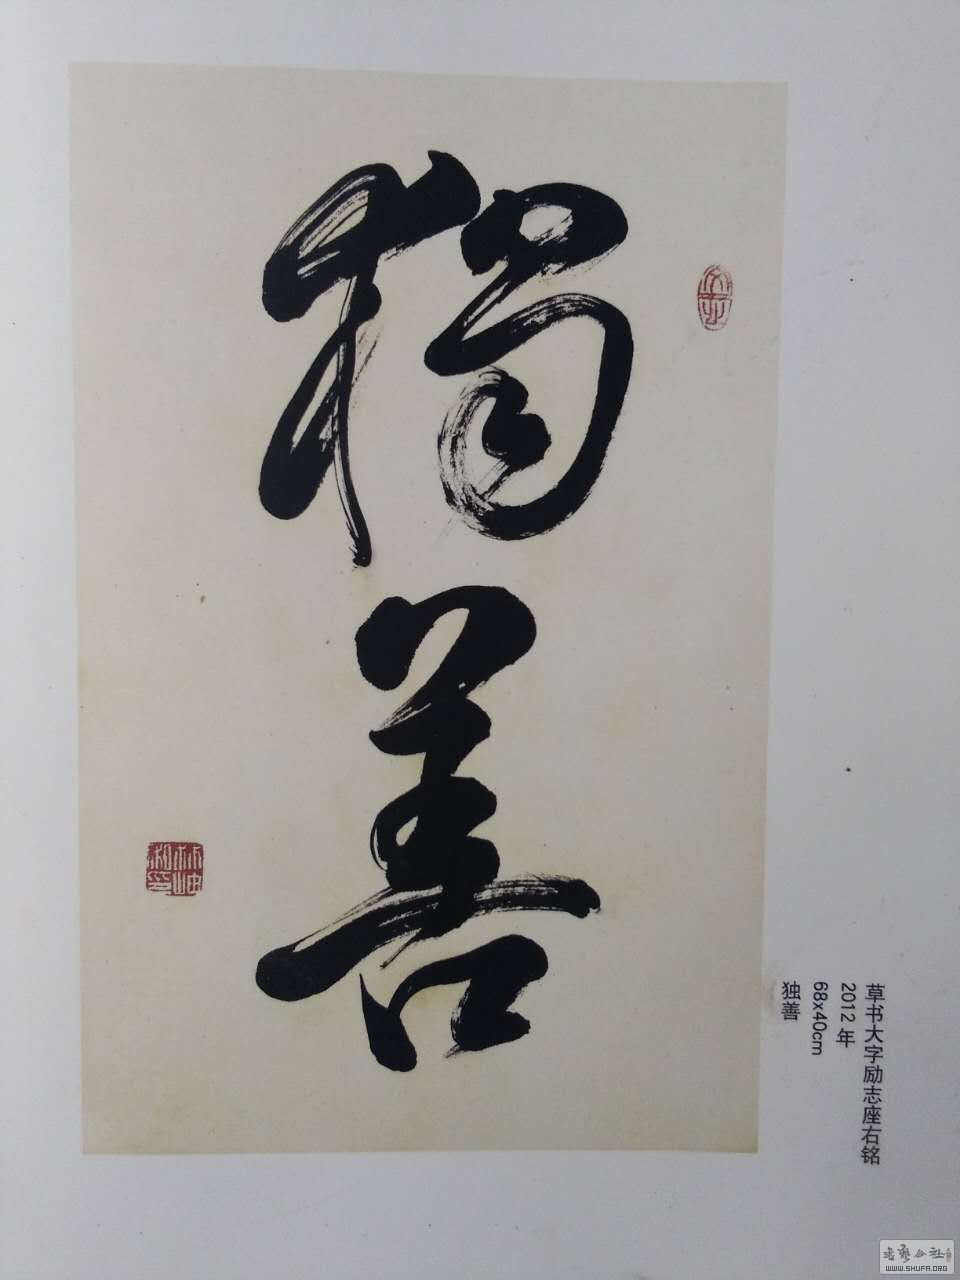 獨善
草书大字励志座右铭
2012年
68x40cm
独善
书艺公社
WWW.SHUFA.ORG